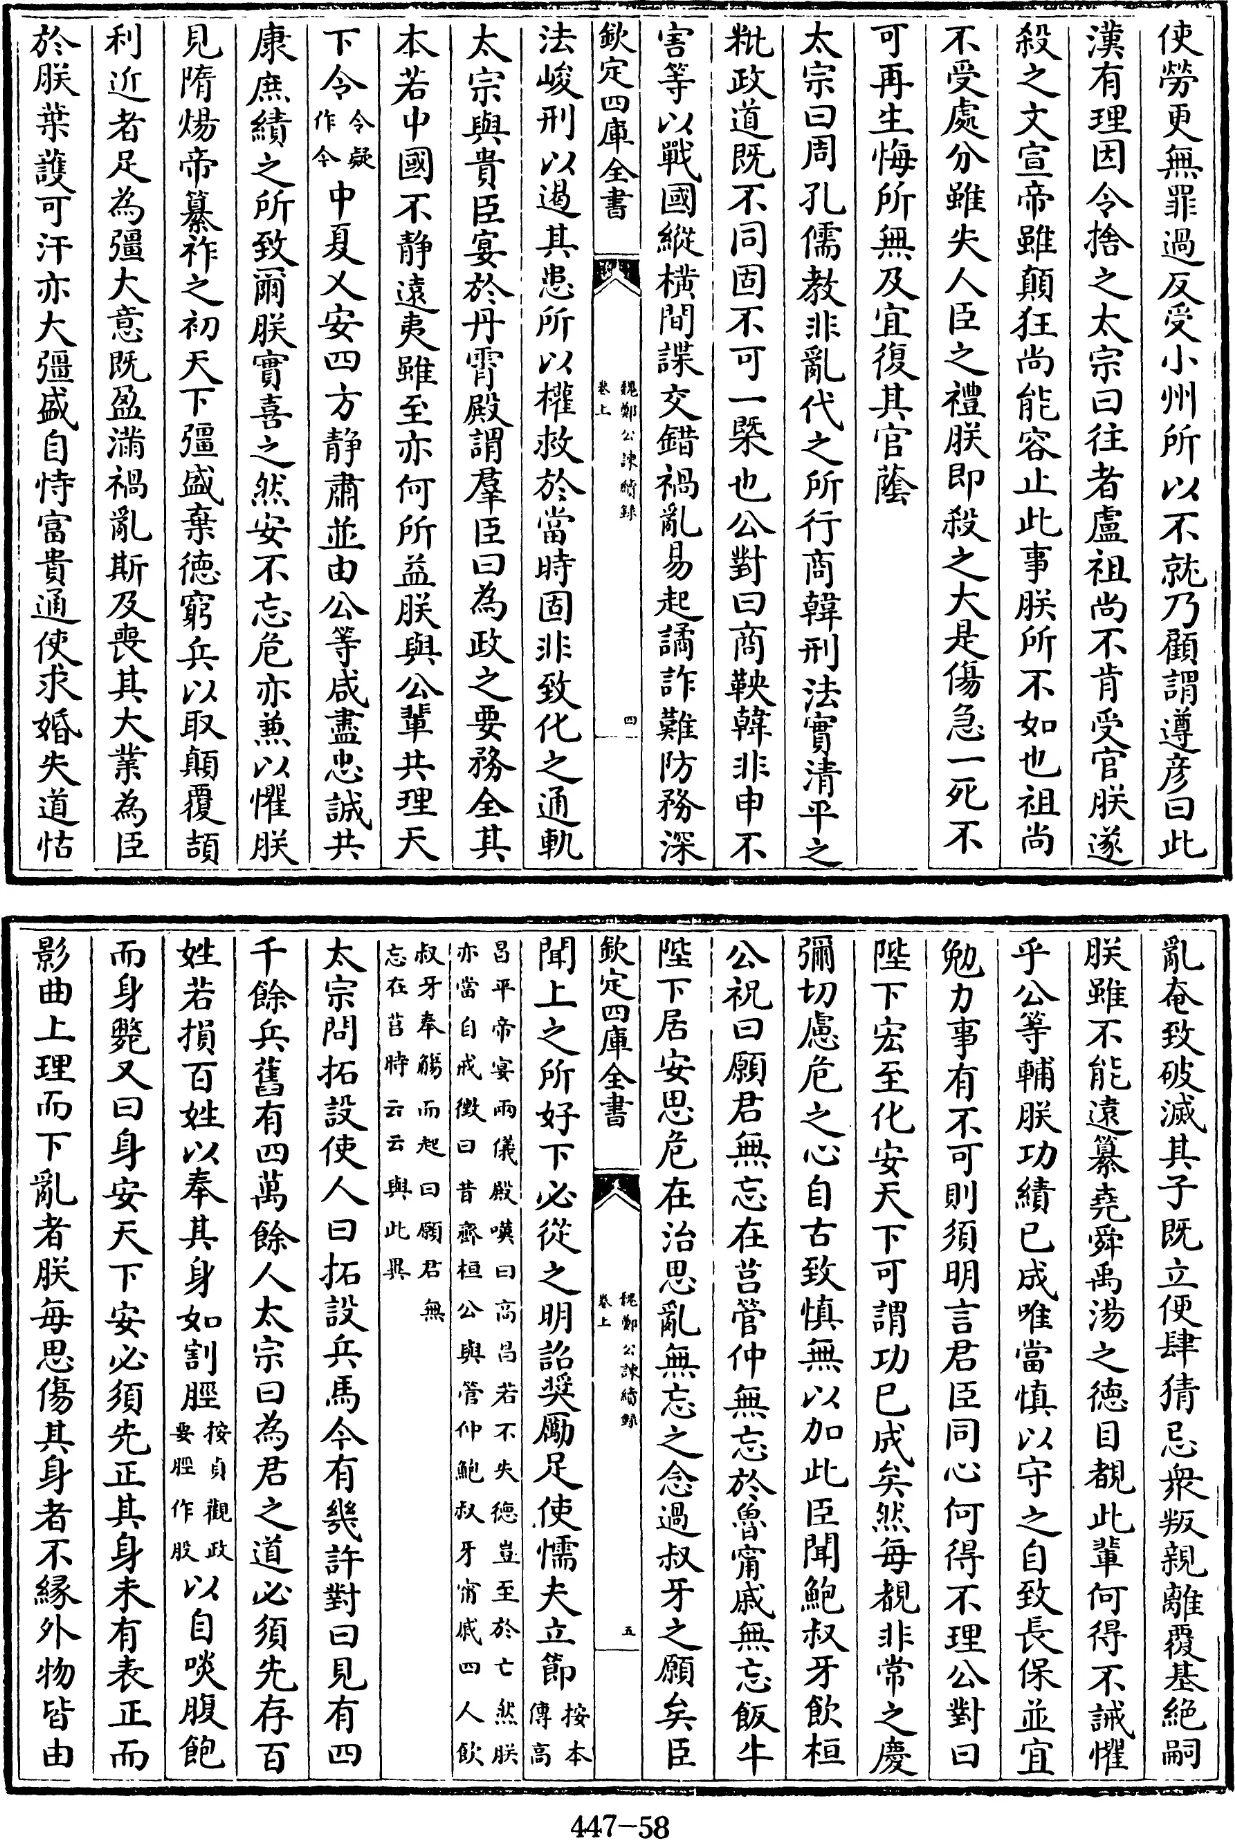 使勞更無罪過反受小州所以不就乃顧謂遵彦曰此
漢有理因令捨之太宗曰往者盧祖尚不肯受官朕遂
殺之文宣帝雖顛狂尚能容止此事朕所不如也祖尚
不受處分雖失人臣之禮朕即殺之大是傷急一死不
可再生悔所無及宜復其官蔭
太宗曰周孔儒教非亂代之所行商韓刑法實清平之
粃政道既不同固不可一槩也公對曰商鞅韓非申不
害等以戰國縱橫間諜交錯禍亂易起譎詐難防務深
欽定四庫全書
魏鄭公諫續錄
卷上
四
法峻刑以遏其患所以權救於當時固非致化之通軌
太宗與貴臣宴於丹霄殿謂羣臣曰為政之要務全其
本若中國不靜遠夷雖至亦何所益朕與公輩共理天
下令令疑作今中夏乂安四方靜肅並由公等咸盡忠誠共
康庶績之所致爾朕實喜之然安不忘危亦兼以懼朕
見隋煬帝纂祚之初天下彊盛棄德窮兵以取顛覆頡
利近者足為彊大意既盈滿禍亂斯及喪其大業為臣
於朕葉護可汗亦大彊盛自恃富貴通使求婚失道怙
亂奄致破滅其子既立便肆猜忌衆叛親離覆基絶嗣
朕雖不能遠纂堯舜禹湯之德目覩此輩何得不誡懼
乎公等輔朕功績已成唯當慎以守之自致長保並宜
勉力事有不可則須明言君臣同心何得不理公對曰
陛下宏至化安天下可謂功已成矣然每覩非常之慶
彌切慮危之心自古致慎無以加此臣聞鮑叔牙飲桓
公祝曰願君無忘在莒管仲無忘於魯甯戚無忘飯牛
陛下居安思危在治思亂無忘之念過叔牙之願矣臣
欽定四庫全書
魏鄭公諫續錄
卷上
五
聞上之所好下必從之明詔奨勵足使懦夫立節按本傳高
昌平帝宴兩儀殿嘆曰高昌若不失德豈至於亡然朕
亦當自戒徵曰昔齊桓公與管仲鮑叔牙甯戚四人飲
叔牙奉觴而起曰願君無
忘在莒時云云與此異
太宗問拓設使人曰拓設兵馬今有幾許對曰見有四
千餘兵舊有四萬餘人太宗曰為君之道必須先存百
姓若損百姓以奉其身如割脛按貞觀政要脛作股以自啖腹飽
而身斃又曰身安天下安必須先正其身未有表正而
影曲上理而下亂者朕每思傷其身者不緣外物皆由
447-58